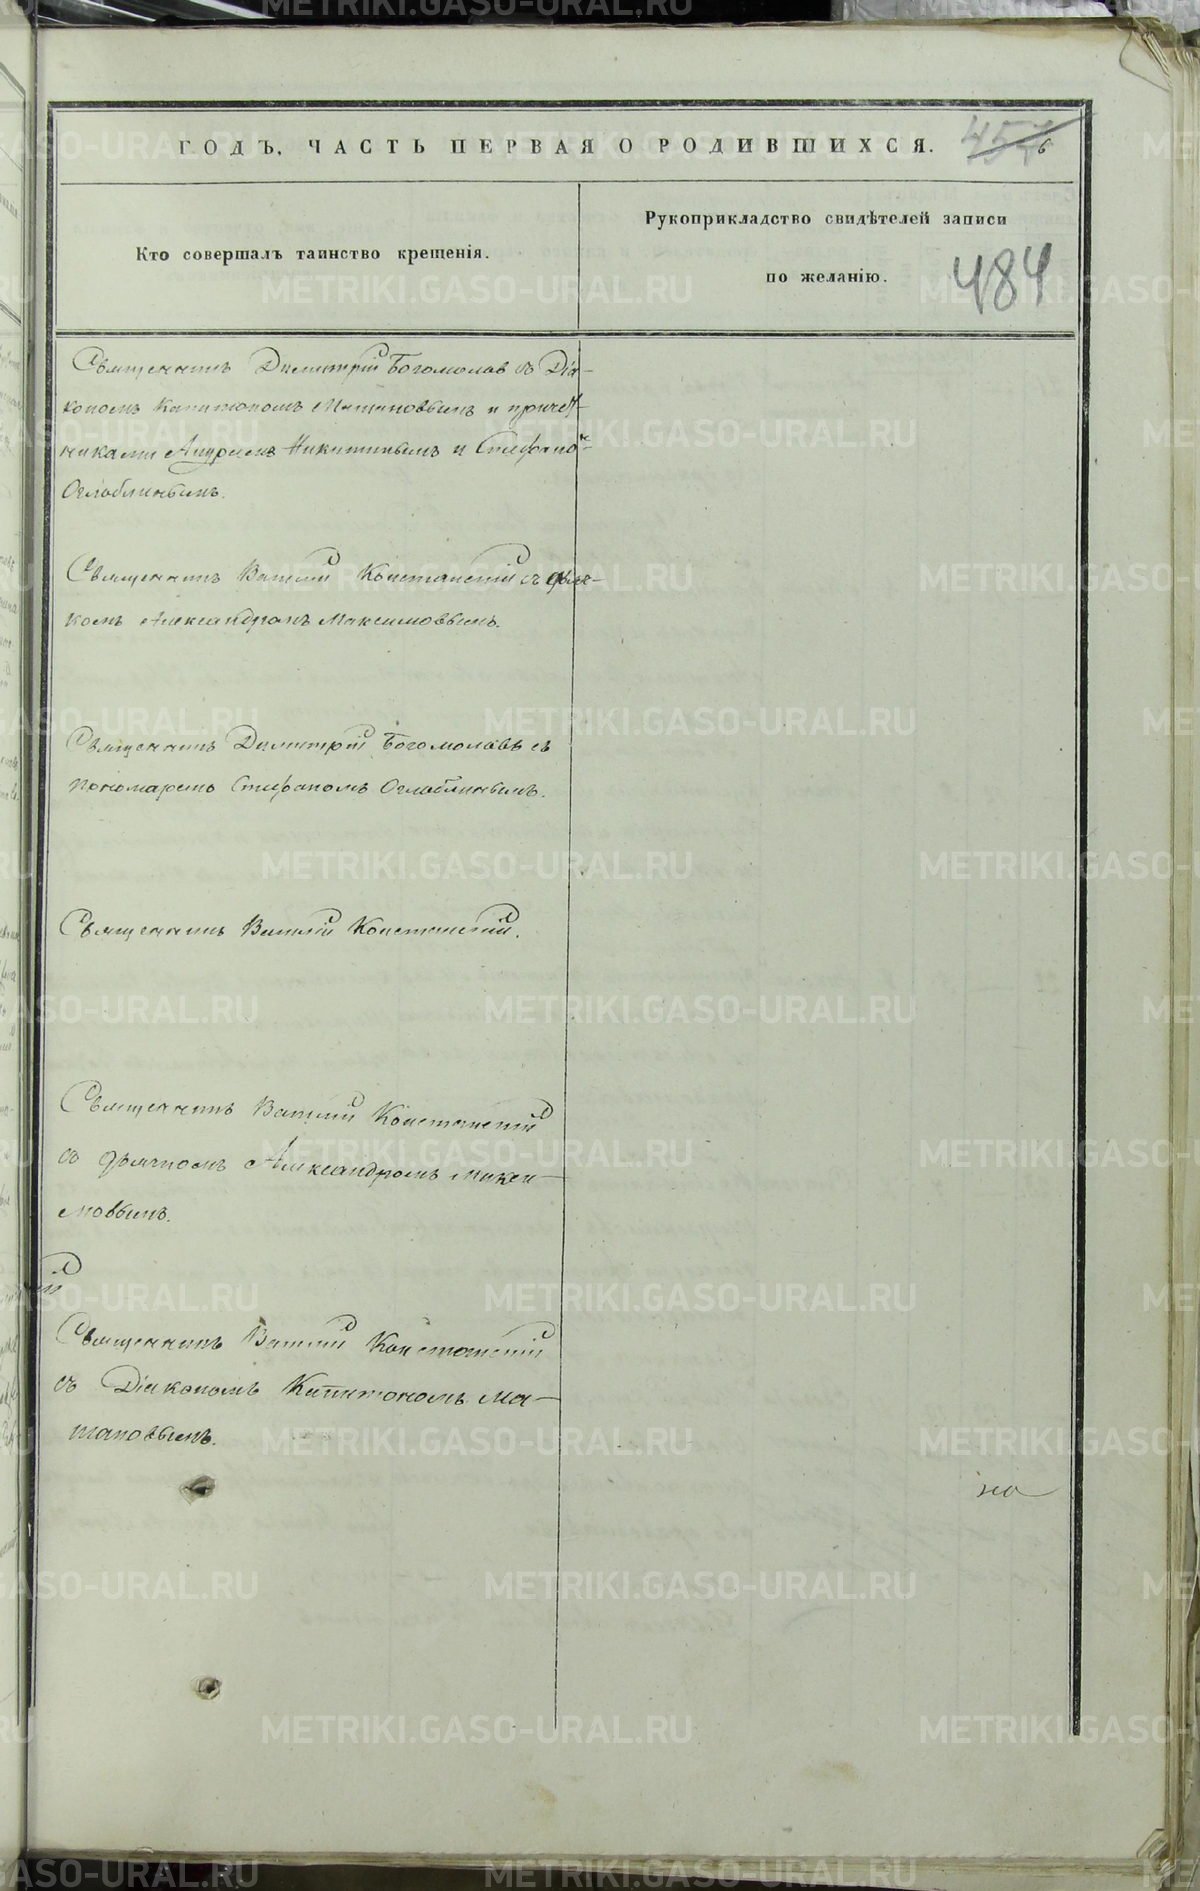 ГОДЪ. ЧАСТЬ ПЕРВАЯ О РОДИВШИХСЯ.
Кто совершалъ таинство крещенія.
Рукоприкладство свидѣтелей записи
по желанію.
484
Священникъ Димитрій Богомоловъ съ Діа-
кономъ Капитономъ и причет-
никами Андреемъ Никитинымъ и Стефано-
Оглоблинымъ.
Священникъ Василій Констанскій съ дьяч-
комъ Александромъ Максимовымъ.
Священникъ Димитрій Богомоловъ съ
Пономаремъ Стефаномъ Оглоблинымъ.
Священникъ Василій Констанскій.
Священникъ Василій Констанскій
съ дьячкомъ Александромъ Макси-
мовымъ.
Священникъ Василій Констанскій
съ Діакономъ Капитономъ Ма-
на
METRIKI.GASO-URAL.RU